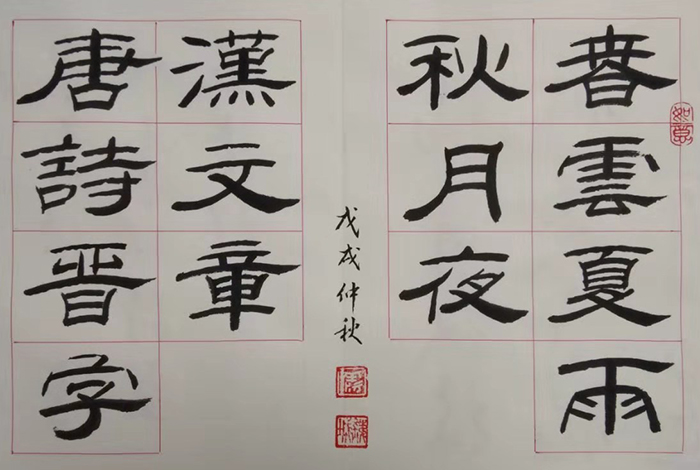 春雲夏雨
秋月夜
漢文章
唐詩晋字
戊戌仲秋
如意